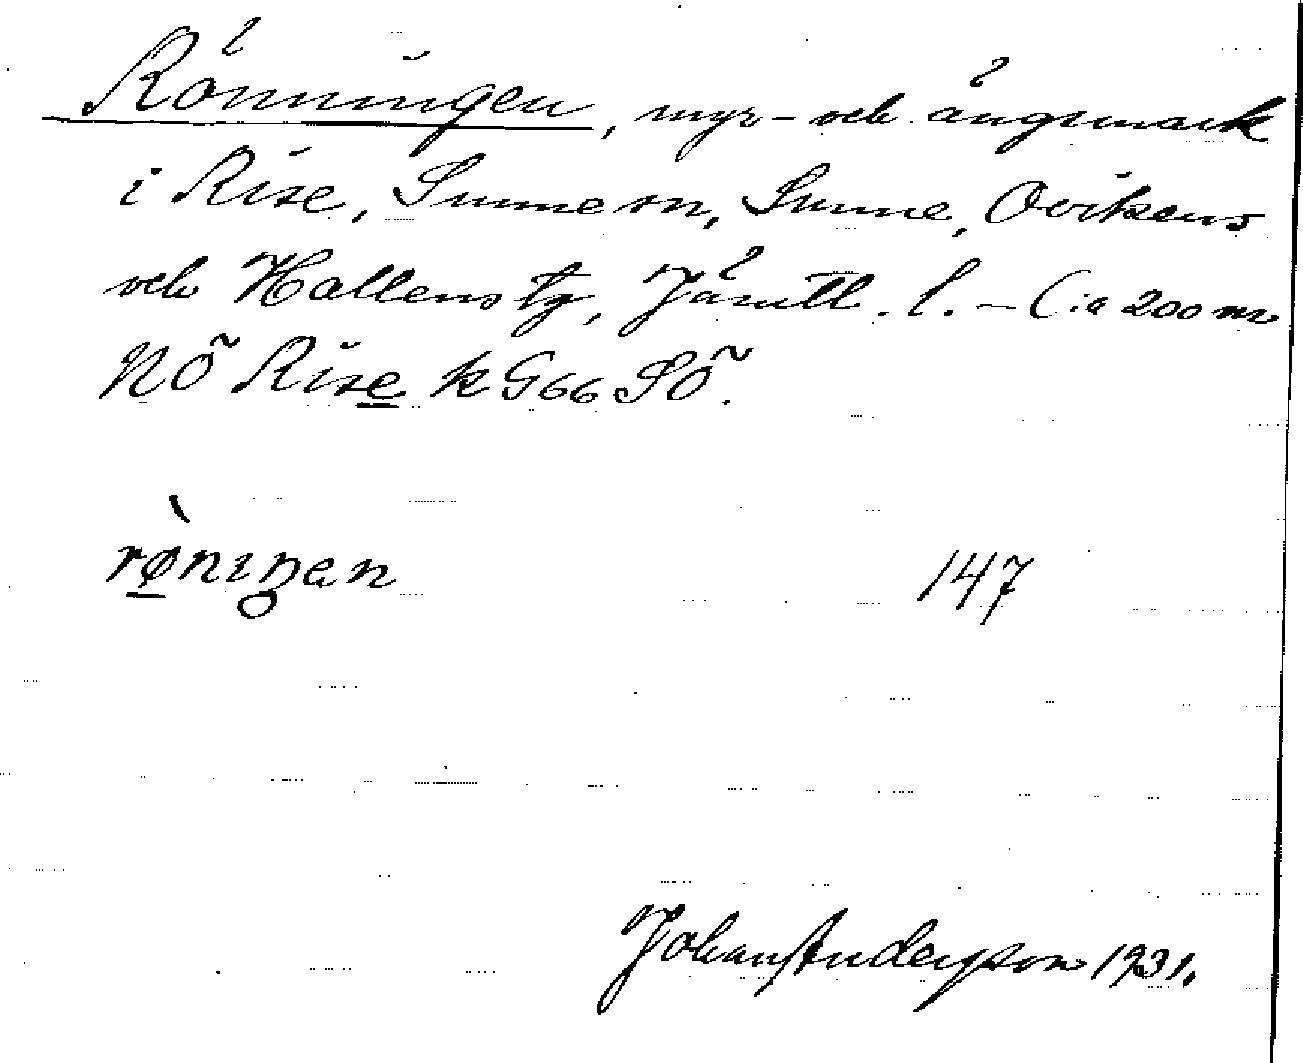 Rönningen, myr- och ängsmark
i Rise, Sunne sn, Sunne, Ovikens
och Hallens tg, Jämtl. l. – C:a 200 m
NÖ Rise k G66 SÖ.
rø̀niŋen 147
Johan Andersson 1931.